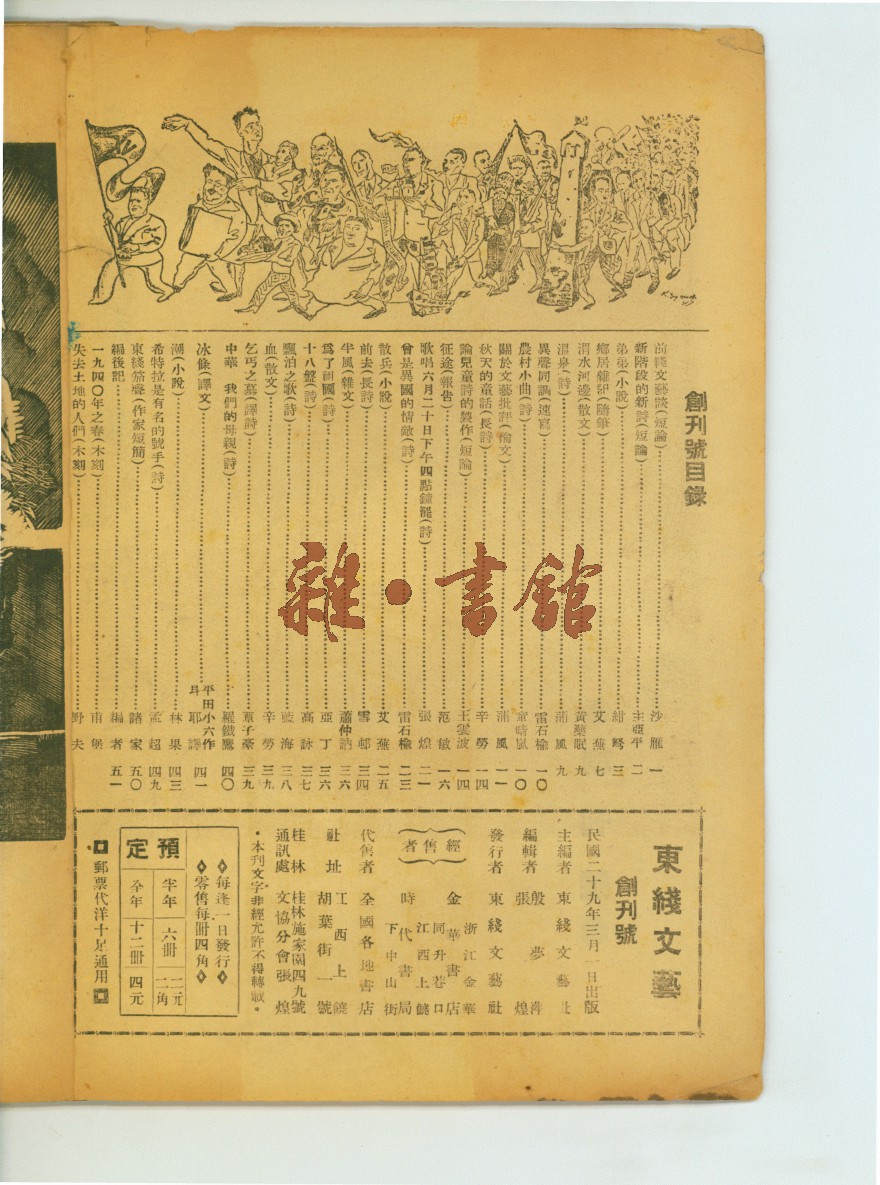 創刊號目錄
前綫文藝談(短論)……沙雁 一
新階段的新詩(短論)……王亞平 二
弟弟(小說)……紺弩 三
鄉居雜記(隨筆)……艾蕪 七
渭水河邊(散文)……黃藥眠 九
溫泉(詩)……蒲風 九
異聲同調(速寫)……雷石榆 一〇
農村小曲(詩)……童晴嵐 一〇
關於文藝批評(論文)……蒲風 一一
秋天的童話(長詩)……辛勞 一四
論兒童詩的製作(短論)……王雲波 一四
征途(報告)……范敏 一六
歌唱六月二十日下午四點鐘罷(詩)……張煌 二一
曾是異國的情敵(詩)……雷石榆 二三
散兵(小說)……艾蕪 二五
前去(長詩)……雪邨 三四
半風(雜文)……蕭仲訥 三六
爲了祖國(詩)……亞丁 三六
十八盤(詩)……高詠 三七
飄泊之歌(詩)……藍海 三八
血(散文)……辛勞 三九
乞丐之墓(譯詩)……覃子豪 三九
中華 我們的母親(詩)……羅鐵鷹 四〇
冰條(譯文)……平田小六作 耳耶譯 四一
潮(小說)……林果 四三
希特拉是有名的號手(詩)……孟超 四九
東綫笳聲(作家短簡)……諸家 五〇
編後記……編者 五一
一九四〇年之春(木刻)……
失去土地的人們(木刻)……野夫
東綫文藝
創刊號
民國二十九年三月一日出版
主編者 東綫文藝社
編輯者 殷夢萍 張煌
發行者 東綫文藝社
經售者
浙江金華
金華書店
同升巷口
江西上饒
時代書局
下中山街
代售者 全國各地書店
社址 江西上饒胡葉街一號
桂林通訊處 桂林施家園四九號 文協分會張煌
・本刊文字非經允許不得轉載・
◆每逢一日發行◆
◆零售每冊四角◆
預定
半年 六冊 二元二角
全年 十二冊 四元
郵票代洋十足通用
雜・書館